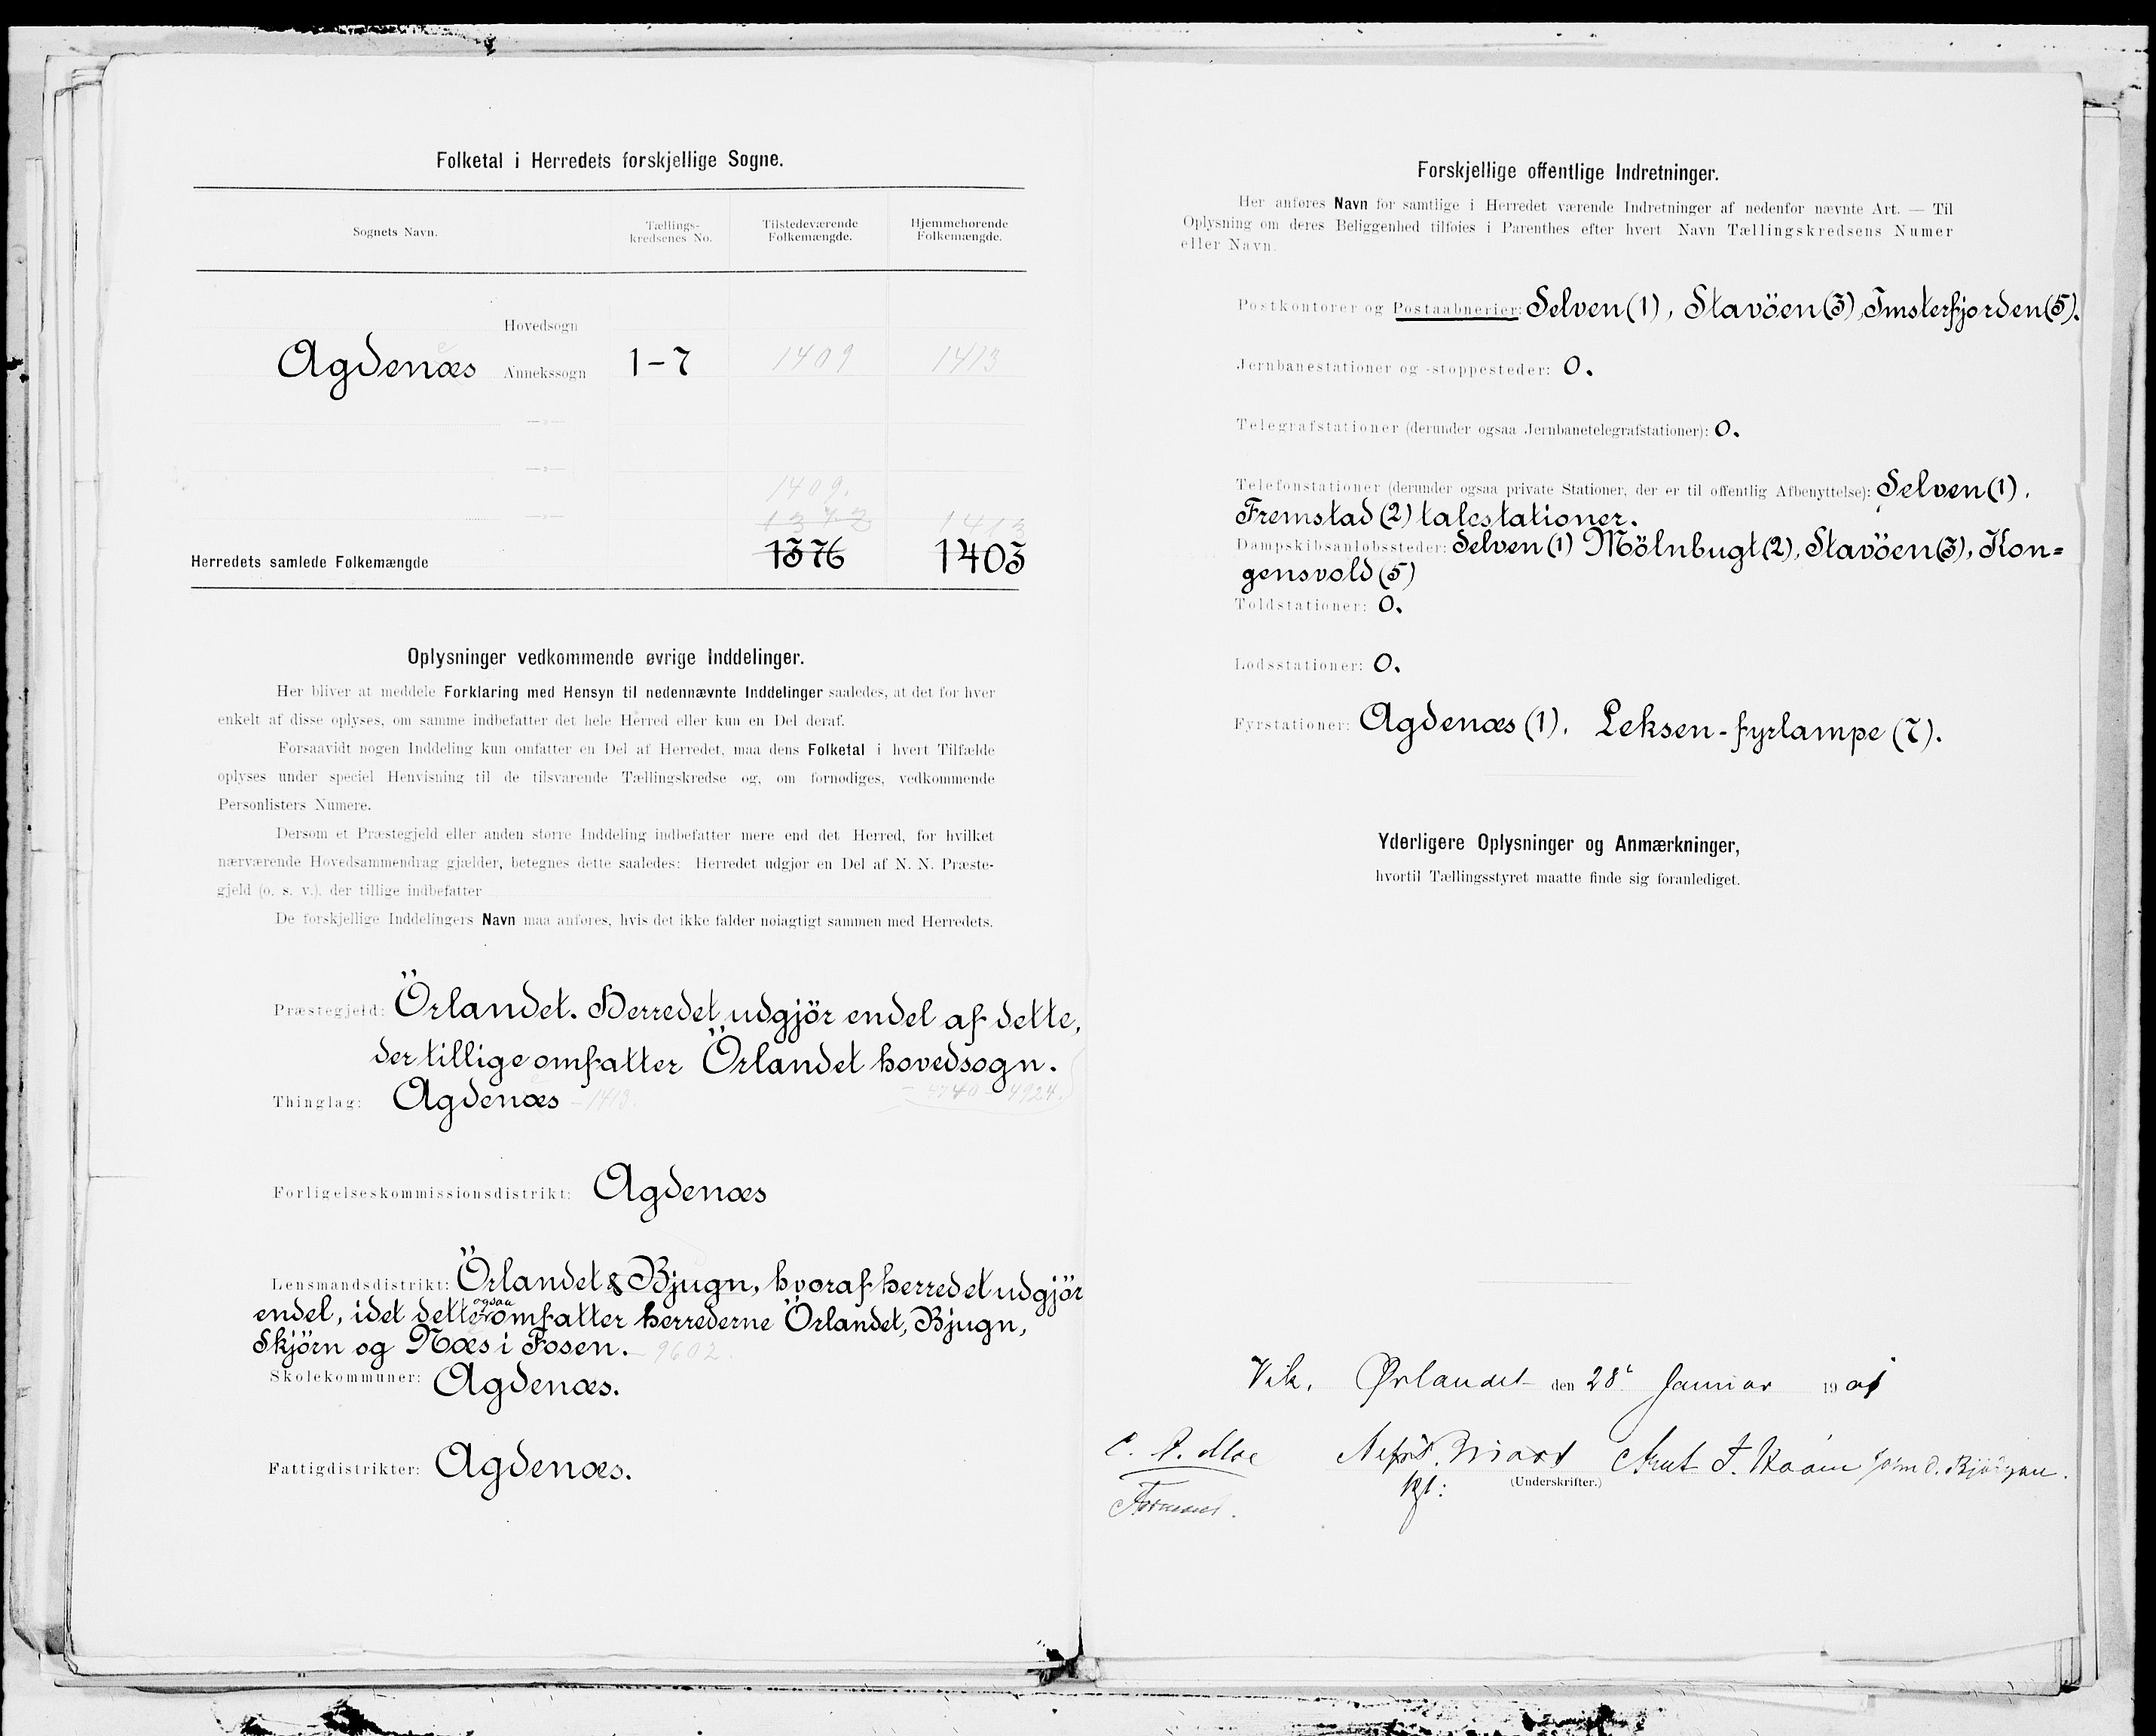 Folketal i Herredets forskjellige Sogne.
Sognets Navn.
Tællings-
kredsenes No.
Tilstedeværende
Folkemængde.
Hjemmehørende
Folkemængde.
Hovedsogn
Agdenæs Annekssogn 1-7 1409 1413
—»—
—»—
1409.
—»— 1372 1413
Herredets samlede Folkemængde 1376 1403
Oplysninger vedkommende øvrige Inddelinger.
Her bliver at meddele Forklaring med Hensyn til nedennævnte Inddelinger saaledes, at det for hver
enkelt af disse oplyses, om samme indbefatter det hele Herred eller kun en Del deraf.
Forsaavidt nogen Inddeling kun omfatter en Del af Herredet, maa dens Folketal i hvert Tilfælde
oplyses under speciel Henvisning til de tilsvarende Tællingskredse og, om fornødiges, vedkommende
Personlisters Numere.
Dersom et Præstegjeld eller anden større Inddeling indbefatter mere end det Herred, for hvilket
nærværende Hovedsammendrag gjælder, betegnes dette saaledes: Herredet udgjør en Del af N. N. Præste-
gjeld (o. s. v.), der tillige indbefatter
De forskjellige Inddelingers Navn maa anføres, hvis det ikke falder nøiagtigt sammen med Herredets.
Præstegjeld: Örlandet. Herredet udgjör endel af dette,
der tillige omfatter Örlandet hovedsogn.
Thinglag: Agdenæs - 1413. - 4740 - 4924.
Forligelseskommissionsdistrikt: Agdenæs
Lensmandsdistrikt: Örlandet & Bjugn, hvoraf herredet udgjör
endel, idet dette ogsaa omfatter herrederne Örlandet, Bjugn,
Skjörn og Næs i Fosen. - 9602.
Skolekommuner: Agdenæs.
Fattigdistrikter: Agdenæs.
Forskjellige offentlige Indretninger.
Her anføres Navn for samtlige i Herredet værende Indretninger af nedenfor nævnte Art. — Til
Oplysning om deres Beliggenhed tilføies i Parenthes efter hvert Navn Tællingskredsens Numer
eller Navn.
Postkontorer og Postaabnerier: Selven (1), Stavöen (3), Imsterfjorden (5).
Jernbanestationer og -stoppesteder: 0.
Telegrafstationer (derunder ogsaa Jernbanetelegrafstationer): 0.
Telefonstationer (derunder ogsaa private Stationer, der er til offentlig Afbenyttelse): Selven (1).
Fremstad (2) talestationer.
Dampskibsanløbssteder: Selven (1) Mölnbugt (2), Stavöen (3), Kon=
gensvold (5)
Toldstationer: 0.
Lodsstationer: 0.
Fyrstationer: Agdenæs (1). Leksen-fyrlampe (7).
Yderligere Oplysninger og Anmærkninger,
hvortil Tællingsstyret maatte finde sig foranlediget.
Vik, Ørlandet den 28 Januar 1901
C. A. Moe
(Underskrifter.)